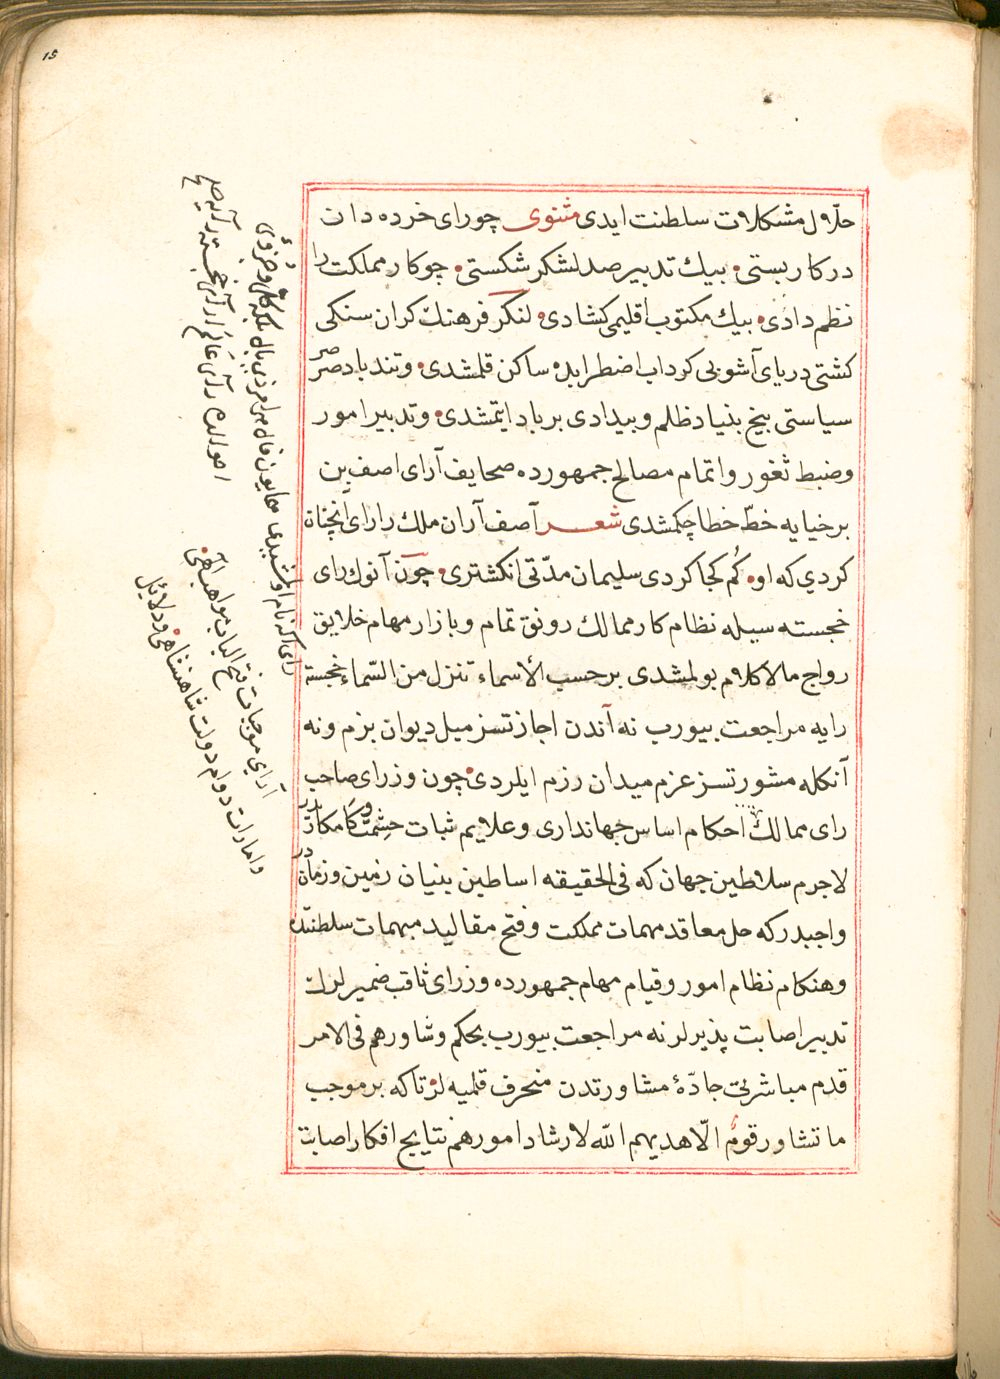 15
حلّال مشكلات سلطنت ايدى مثنوى چو راى خرده دان
در كار بستى بيك تدبير صد لشكر شكستى چو كار مملكت را
نظم دادى بيك مكتوب اقليمى كشادى لنكر فرهنك كران سنكى
كشتئ درياى آشوبى كرداب اضطرابده ساكن قلمشدى وتندباد صرصر
سياستى بيخ بنياد ظلم وبيدادى برباد ايتمشدى وتدبير امور
وضبط ثغور واتمام مصالح جمهورده صحايف آراى اصف بن
برخيايه خطّ خطا چكمشدى شعر آصف آران ملك را راى آنچنان
كردي كه او كُم كجا كردى سليمان مدّتى انكشترى چون آنوك راى
خجسته سيله نظام كار ممالك رونق تمام وبازار مهام خلايق
رواج مالا كلام بولمشدى برحسب الأسماء تنزل من السّماء خجسته
رايه مراجعت بيورب نه آندن اجازتسز ميل ديوان بزم ونه
آنكله مشورتسز عزم ميدان رزم ايلردى چون وزراى صاحب
راى ممالك احكام اساس جهاندارى وعلايم ثبات حشمت وكامكاريدر
لاجرم سلاطين جهان كه فى الحقيقه اساطين بنيان زمين وزماندر
واجبدر كه حل معاقد مهمات مملكت وفتح مقاليد مبهمات سلطنتده
وهنكام نظام امور وقيام مهام جمهورده وزراى ثاقب ضميرلرك
تدبير اصابت پذيرلرنه مراجعت بيورب بحكم وشاورهم فى الامر
قدم مباشرتى جادّهٔ مشاورتدن منحرف قلميه لر تا كه برموجب
ما تشاور قومٌ الّا هديهم الله لارشاد امورهم نتايج افكار اصابت
راى اكه نام اولمشيدى همايون فال
آراى موجبات فتح الباب مواهب آلهى
وامارات دوام دولت شاهنشاهى ودلائل